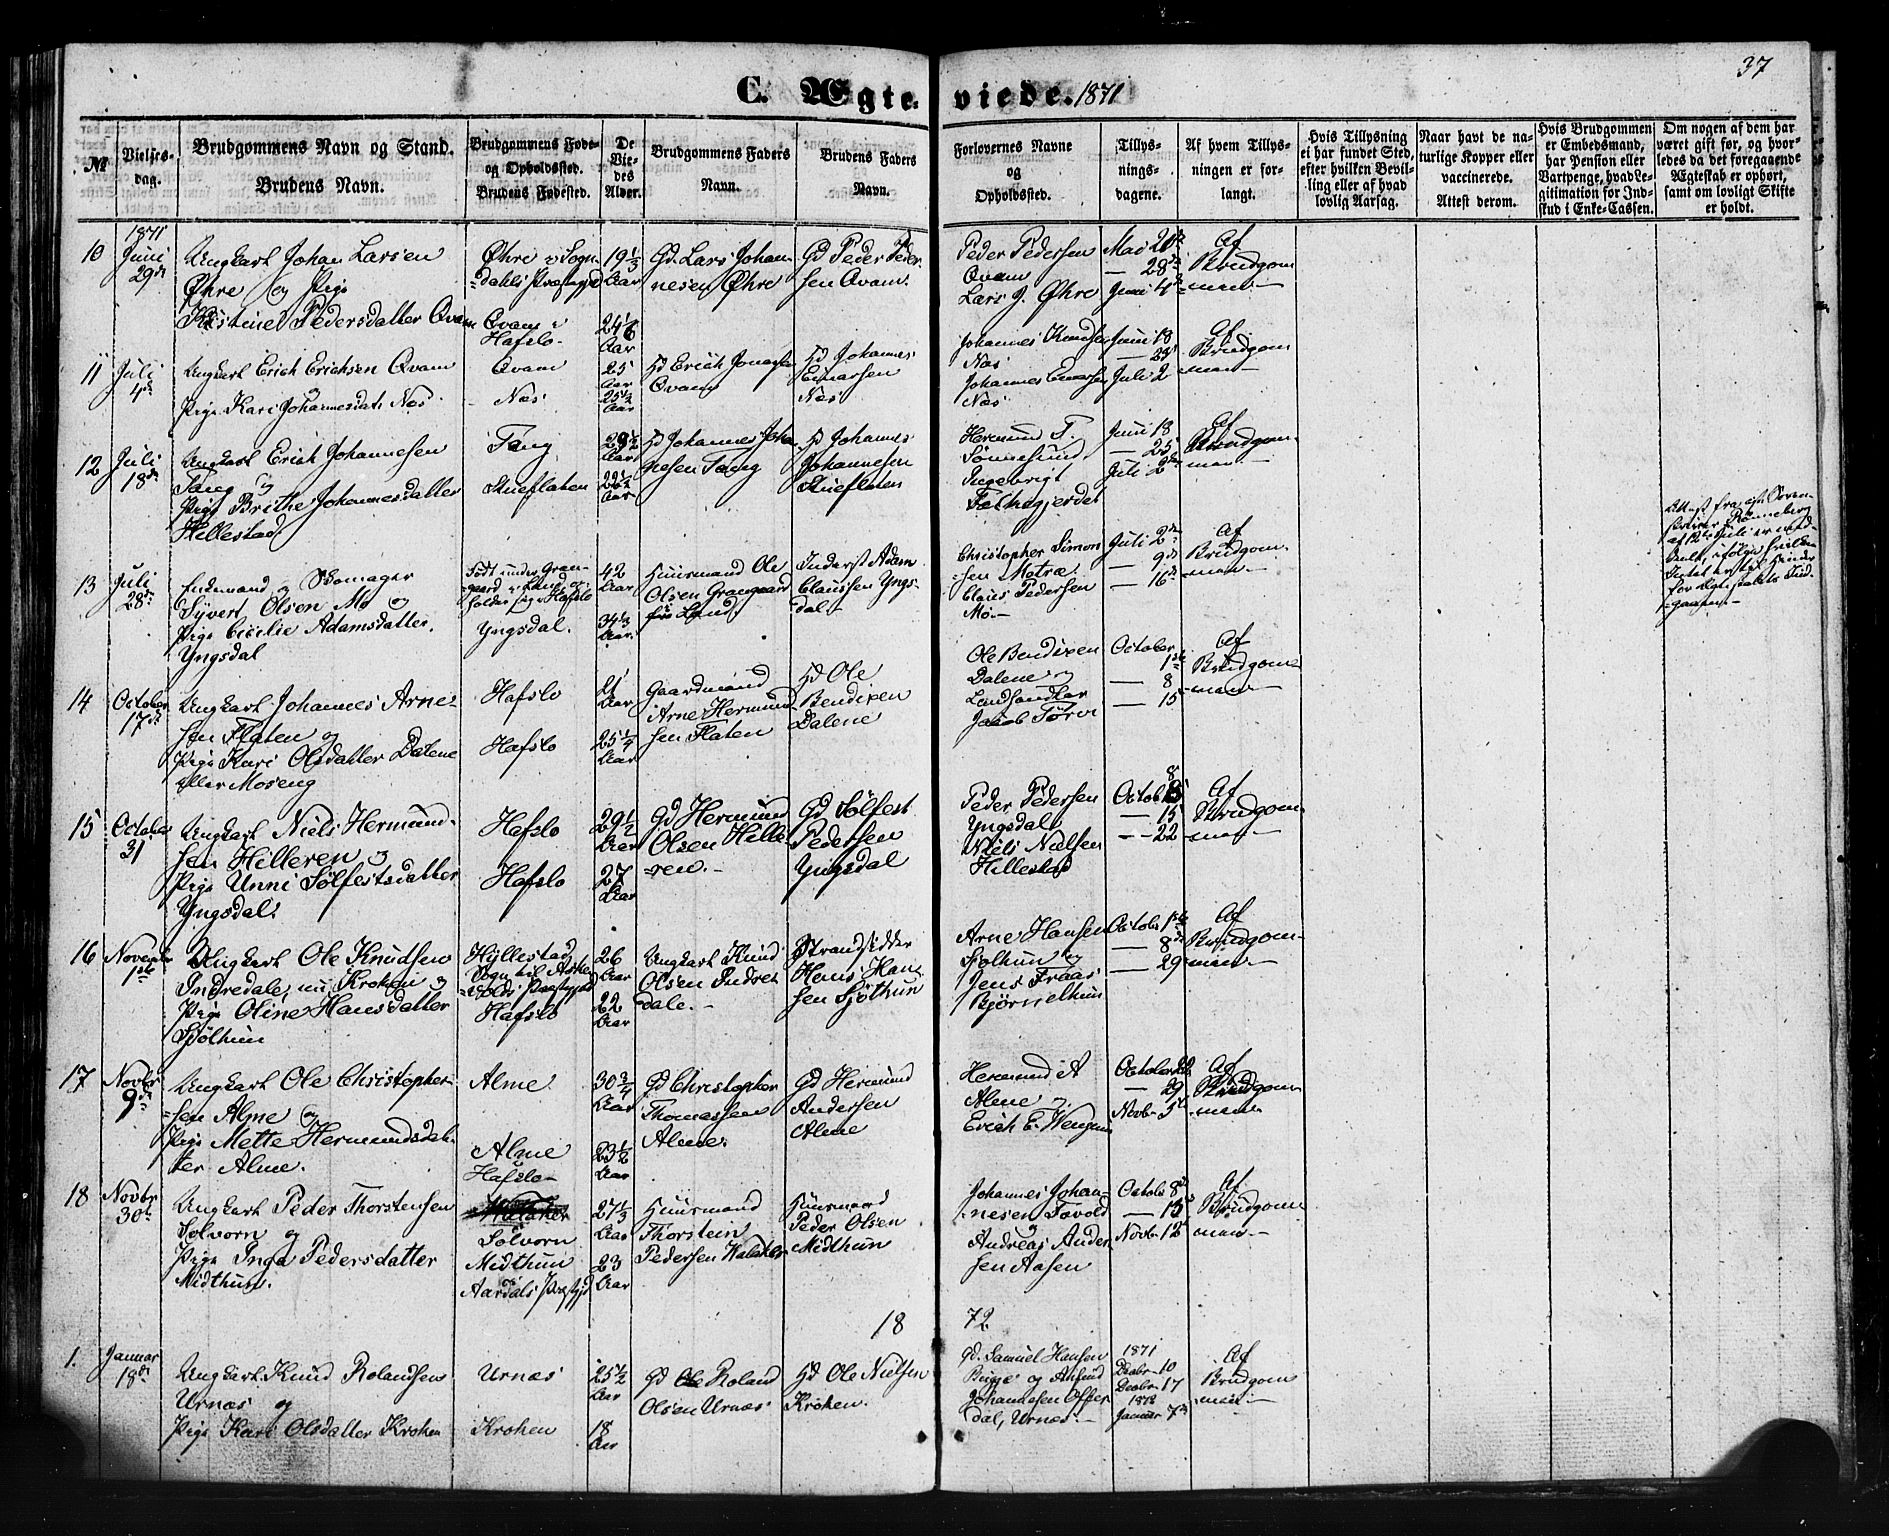 37
C. Ægteviede. 1871
№
Vielses-
dag.
Brudgommens Navn og Stand.
Brudens Navn.
Brudgommens Føde-
og Opholdssted.
Brudens Fødested.
De
Vie-
des
Alder.
Brudgommens Faders
Navn.
Brudens Faders
Navn.
Forlovernes Navne
og
Opholdssted.
Tillys-
nings-
dagene.
Af hvem Tillys-
ningen er for-
langt.
Hvis Tillysning
ei har fundet Sted,
efter hvilken Bevil-
ling eller af hvad
lovlig Aarsag.
Naar havt de na-
turlige Kopper eller
vaccinerede.
Attest derom.
Hvis Brudgommen
er Embedsmand,
har Pension eller
Vartpenge, hvad Le-
gitimation for Ind-
skud i Enke-Cassen.
Om nogen af dem har
været gift før, og hvor-
ledes da det foregaaende
Ægteskab er ophørt,
samt om lovligt Skifte
er holdt.
1871
10
Juni
29de
Ungkarl Johan Larsen
Øhre og Pige
Kristine Pedersdatter Qvam
Øhre i Sogn-
dahls Præstegjd
Qvam i
Hafslo
19 1/3
Aar
24 1/6
Aar
Gd. Lars Johan-
nesen Øhre
Gd Peder Peder-
sen Qvam
Peder Pedersen
Qvam
Lars J. Øhre
Mai 21de
— 28de
Juni 4de
Af
Brudgom-
men
11
Juli
4de
Ungkarl Erich Erichsen Qvam
Pige Kari Johannesdatt. Næs
Qvam
Næs
25
Aar
25 1/2
Aar
Hd Erich Jonassen
Qvam
Hd Johannes
Einarsen
Næs
Johannes Knudsen
Næs
Johannes Einarsen
Næs
Juni 18
— 25
Juli 2
Af
Brudgom
men
12
Juli
18de
Ungkarl Erich Johannesen
Tang og
Pige Brithe Johannesdatter
Hillestad
Tang
Stueflaten
28 1/2
Aar
22 1/2
Aar
Hd Johannes Johan-
nesen Tang
Hd Johannes
Johannesen
Stueflaten
Hermund T.
Sønnesund
Ingebrigt
Juni 18
— 25
Juli 2den
Af
Brudgom-
men
13
Juli
28de
Enkemand og Skomager
Syvert Olsen Mo og
Pige Cicilie Adamsdatter
Yngsdal
Født under Gran-
gaard i Land op-
holder sig i Hafslo
Yngsdal.
42
Aar
34 1/3
Aar
Huusmand Ole
Olsen Grangaard
Land
Inderst Adam
Claussen Yngs-
dal
Christopher Simon-
sen Motræ
Claus Pedersen
Mo
Juli 2den
— 9de
— 16de
Af
Brudgom-
men
14
October
17de
Ungkarl Johannes Arne-
sen Flaten og
Pige Kari Olsdatter Dalene
eller Moseng
Hafslo
Hafslo
21
Aar
25 1/4
Aar
Gaardmand
Arne Hermund-
sen Flaten
Hd Ole
Bendixen
Dalene
Ole Bendixen
Dalene og
Landhandler
Jakob Tørvi
October
1ste
— 8
— 15
Af
Brudgom-
men
15
October
31
Ungkarl Niels Hermund-
sen Hilleren og
Pige Unni Sølfestsdatter
Yngsdal
Hafslo
Hafslo
29 1/2
Aar
27
Aar
Gd Hermund
Olsen Hille-
ren
Gd Sølfest
Pedersen
Yngsdal
Peder Pedersen
Yngsdal
Niels Nielsen
Hillestad
Octob 8
— 15
— 22
Af
Brudgom-
men
16
Novembr
1ste
Ungkarl Ole Knudsen
Indredale, nu Kroken og
Pige Oline Hansdatter
Sjølhun
Hyllestad
Sogn til Ask-
volds Præstegjd
Hafslo
26
Aar
22
Aar
Ungkarl Knud
Olsen Indre-
dale
Strandsidder
Hans Han-
sen Sjølhun
Arne Hansen
Sjølhun og
Jens Fraas
Bjørnethun
Octobr 1ste
— 8de
— 29
Af
Brudgom-
men
17
Novbr
9de
Ungkarl Ole Christopher-
sen Alme og
Pige Mette Hermundsdat-
ter Alme
Alme
Alme
Hafslo
30 3/4
Aar
23 1/2
Aar
Gd Christopher
Thomassen
Alme
Gd Hermund
Andersen
Alme
Hermund A
Alme og
Erich E.
October 22
— 29
Novbr 5te
Af
Brudgom-
men
18
Novbr
30te
Ungkarl Peder Thorstensen
Solvorn og
Pige Inga Pedersdatter
Midthun
Solvorn
Midthun
Aardals Præstegjd
27 1/3
Aar
23
Aar
Huusmand
Thorstein
Pedersen Walaker
Huusmand
Peder Olsen
Midthun
Johannes Johan-
nesen
Andreas Ander-
sen Aasen
Octob 8de
— 15
Novbr 12te
Af
Brudgom-
men
18 72
1.
Januar
18de
Ungkarl Knud Rolandsen
Urnæs og
Pige Kari Olsdatter Kroken
Urnæs
Kroken
25 1/2
Aar
18
Aar
Gd Roland
Olsen Urnæs
Hd Ole Nielsen
Kroken
Gd. Samuel Hansen
Bugge og
Johannesen Offer-
dal, Urnæs
1871
Decbr 10
Decbr 17
1872
Januar 7de
Af
Brudgom-
men